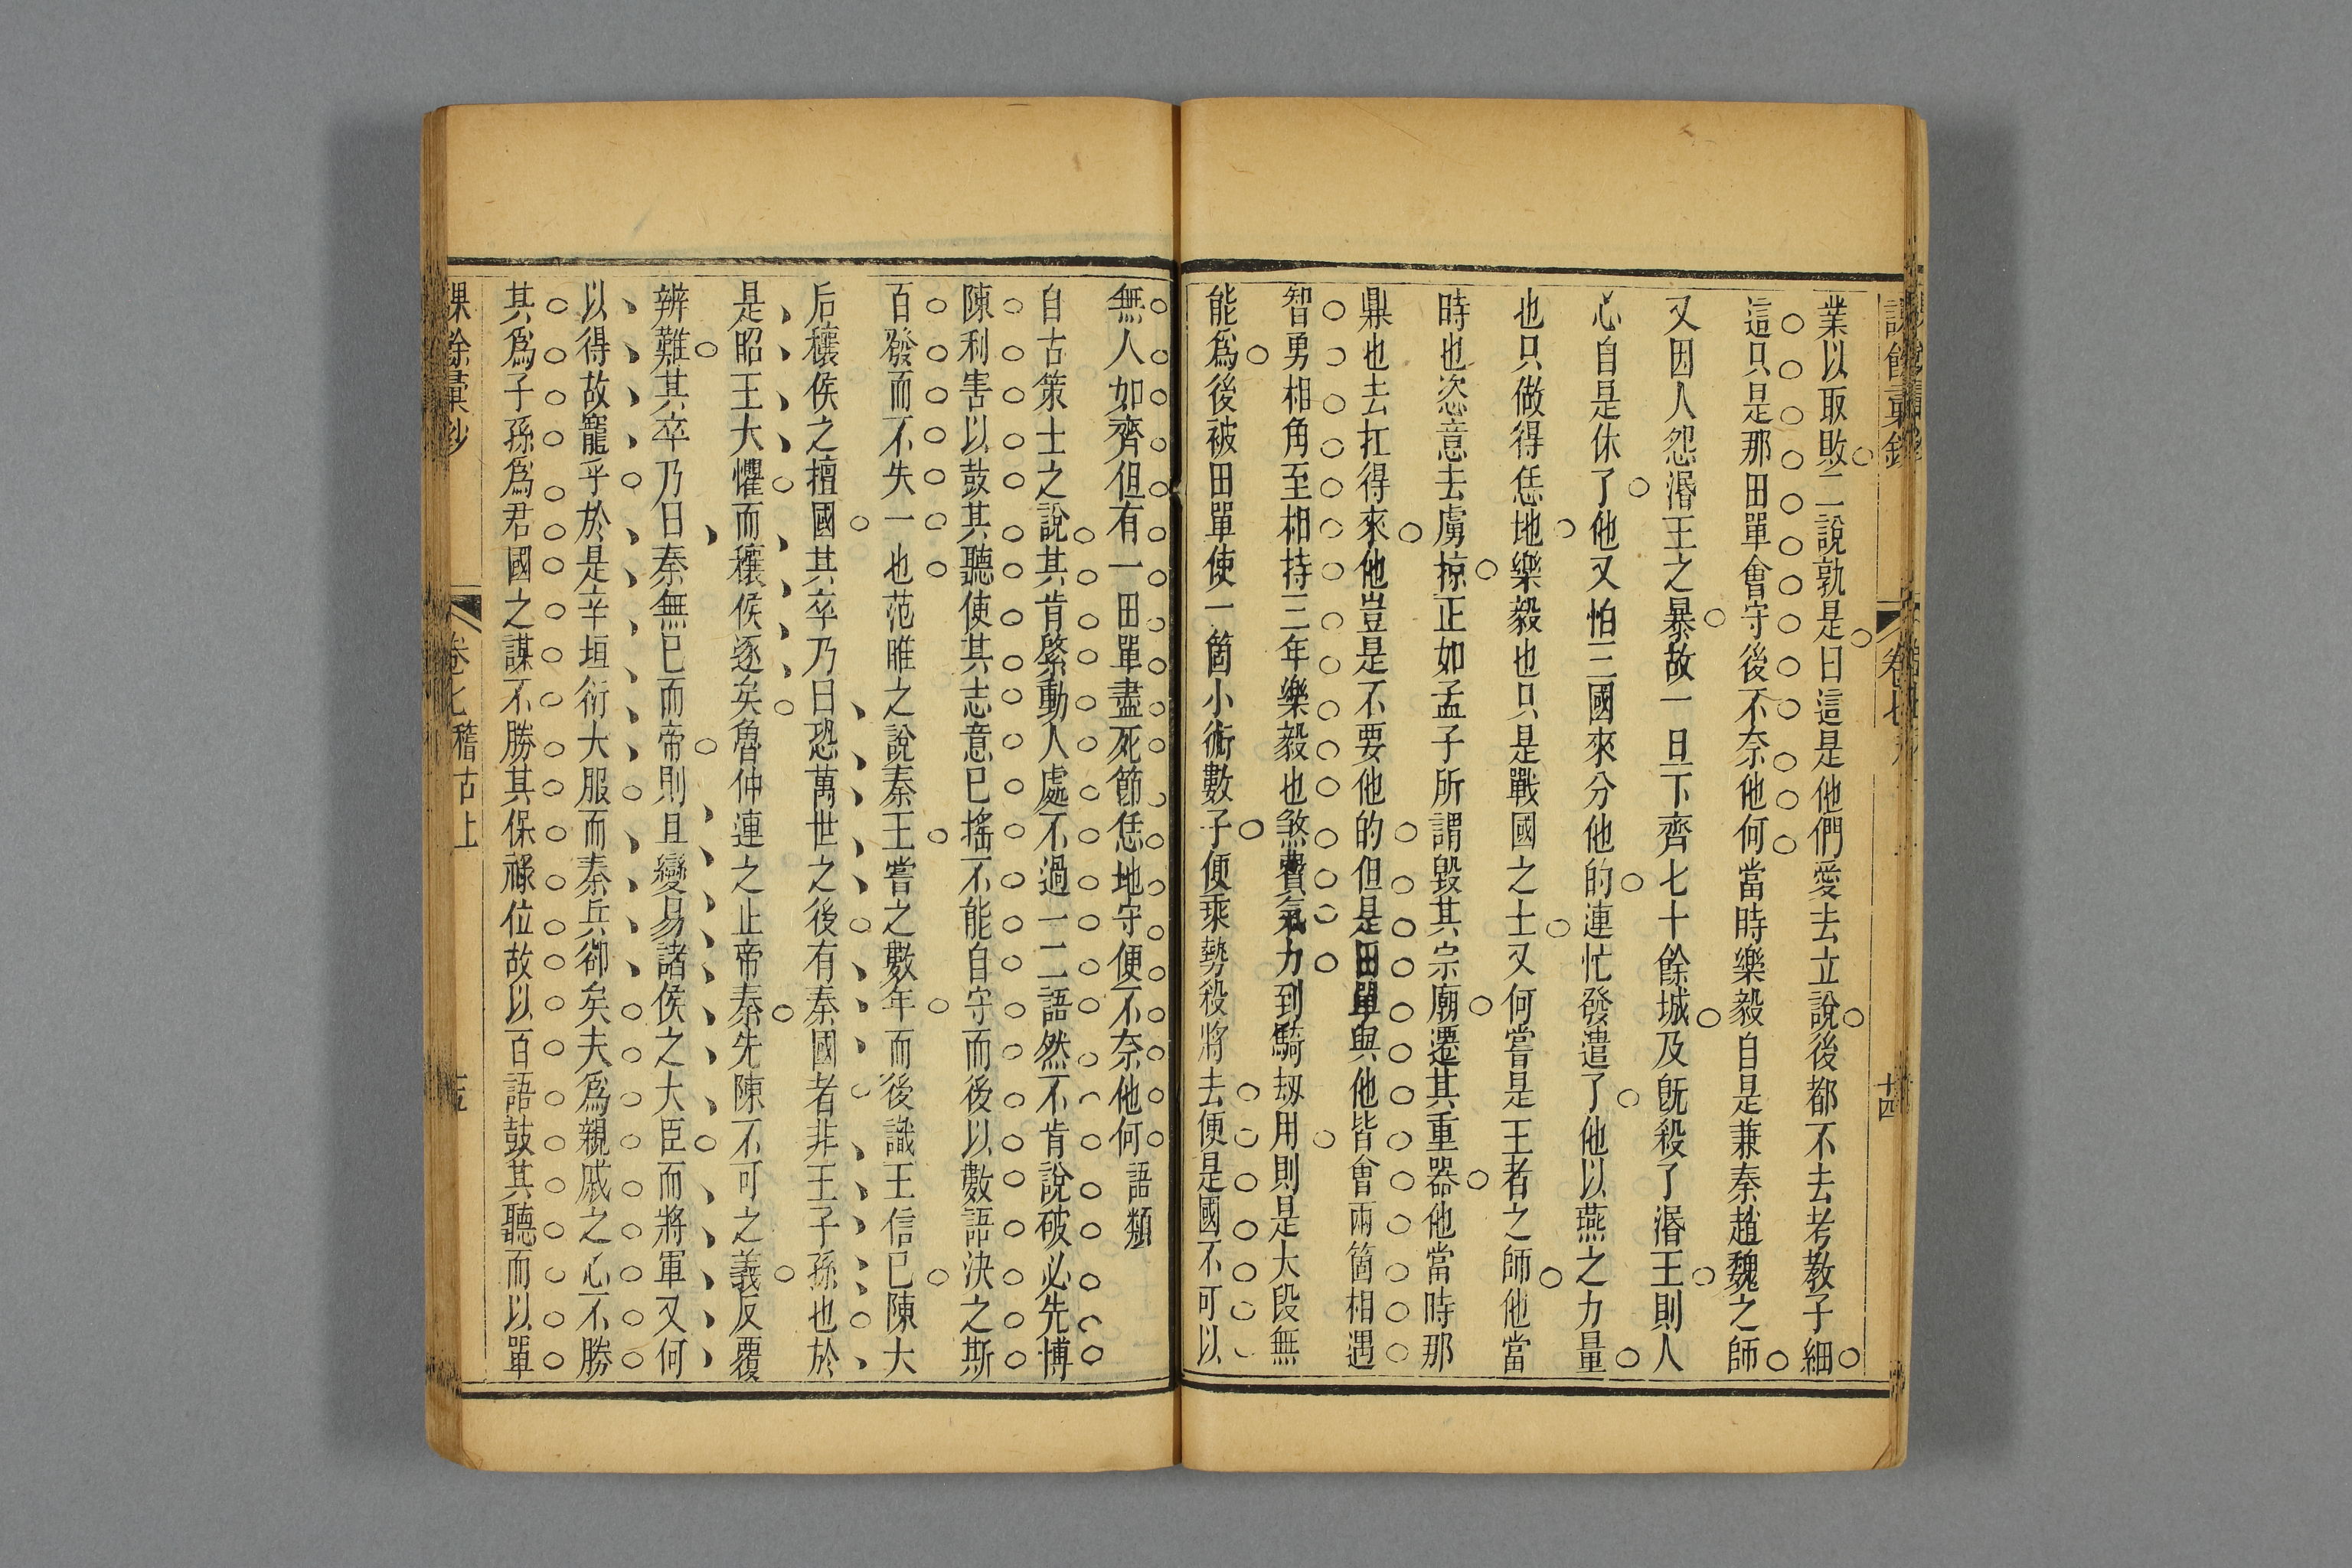 業以取敗二說孰是曰這是他們愛去立說後都不去考敎子細
這只是那田單會守後不奈他何當時樂毅自是兼秦趙魏之師
又因人怨湣王之暴故一旦下齊七十餘城及旣殺了湣王則人
心自是休了他又怕三國來分他的連忙發遣了他以燕之力量
也只做得恁地樂毅也只是戰國之士又何嘗是王者之師他當
時也恣意去虜掠正如孟子所謂毀其宗廟遷其重器他當時那
鼎也去扛得來他豈是不要他的但是田單與他皆會兩箇相遇
智勇相角至相持三年樂毅也煞費氣力到騎刼用則是大段無
能爲後被田單使一箇小術數子便乘勢殺將去便是國不可以
卷七
十四
無人如齊但有一田單盡死節恁地守便不奈他何 語類
自古策士之說其肯綮動人處不過一二語然不肯說破必先博
陳利害以鼓其聽使其志意已搖不能自守而後以數語決之斯
百發而不失一也范睢之說秦王嘗之數年而後識王信已陳大
后穰侯之擅國其卒乃曰恐萬世之後有秦國者非王子孫也於
是昭王大懼而穰侯逐矣魯仲連之止帝秦先陳不可之義反覆
辨難其卒乃曰秦無已而帝則且變易諸侯之大臣而將軍又何
以得故寵乎於是辛垣衍大服而秦兵卻矣夫爲親戚之心不勝
其爲子孫爲君國之謀不勝其保祿位故以百語鼓其聽而以單
課餘彙鈔
卷七 稽古上